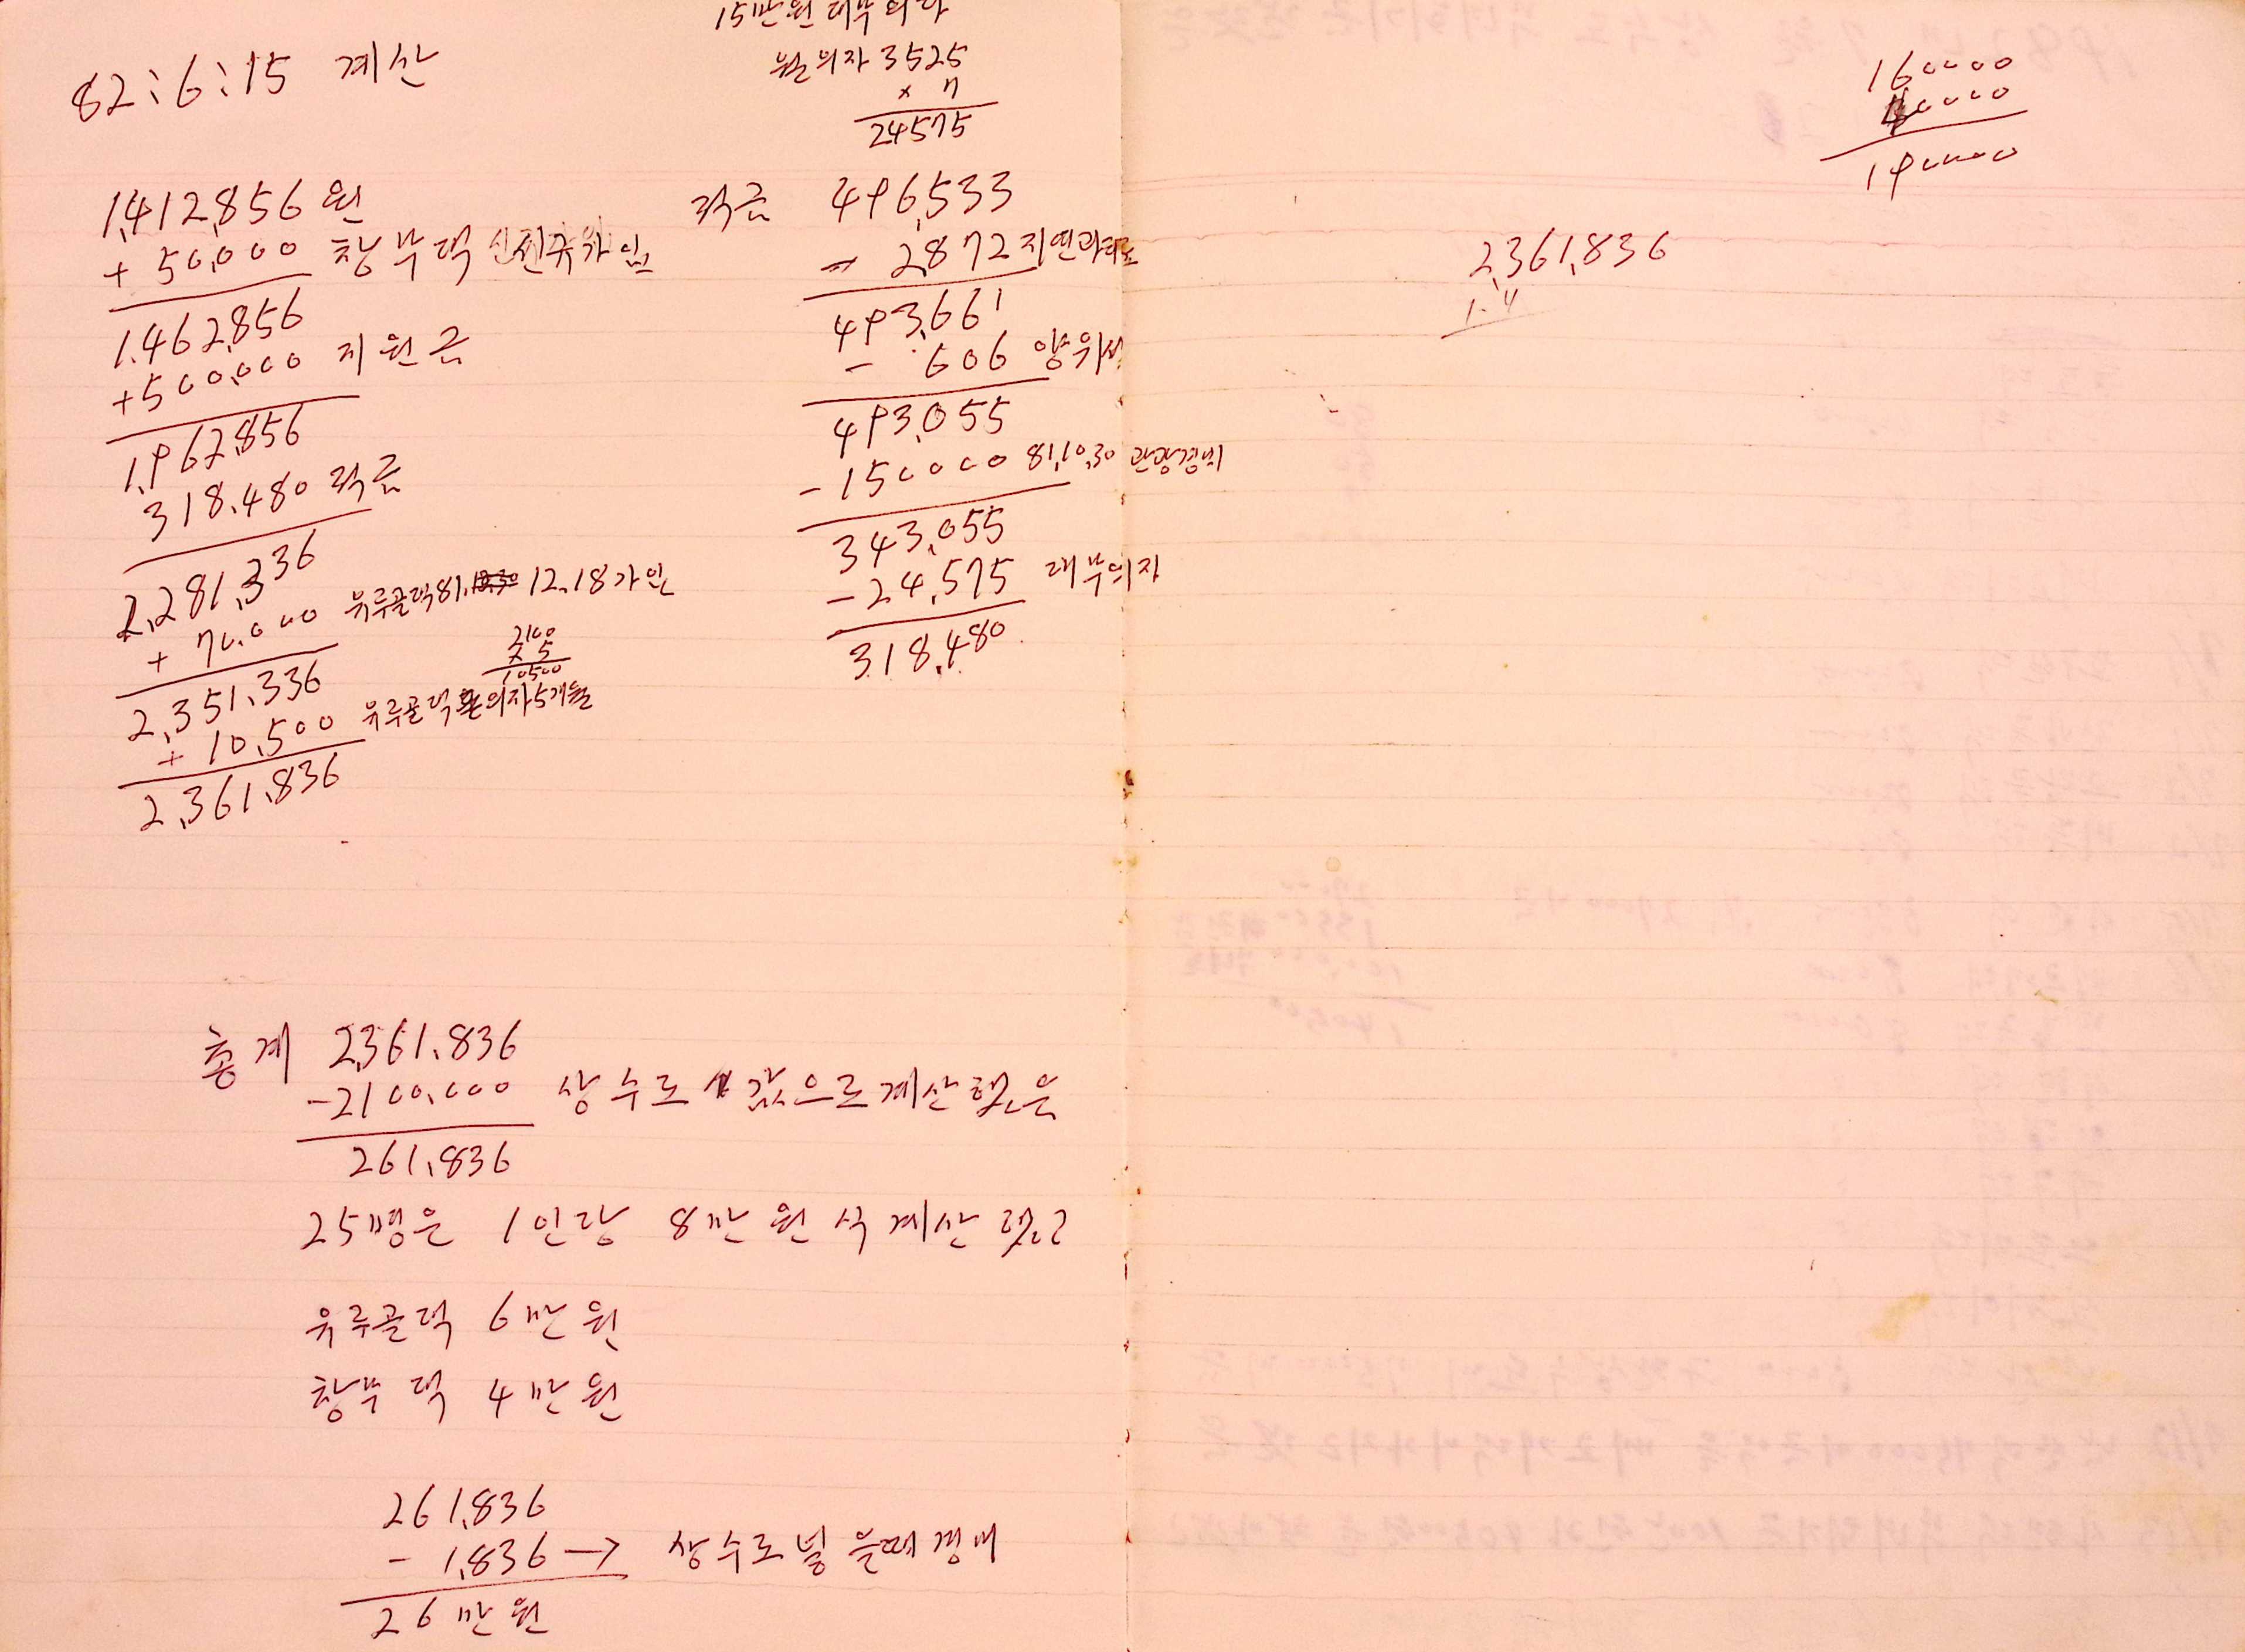 82:6:15 계산
1,412,856원
+ 50,000 창부댁 신규가입
1.462,856
+500,000 지원금
1,962,856
318.480 적금
2,281,336
+ 70,000 유루골댁 81. 12.18가입
2,351,336
2100
x 5
10500
+ 10,500 유루골댁 의자 5개월
2,361,836
15만원 대부의자
월의자 3525
x 7
24575
적금 496,533
- 2,872 지연과태료
493,661
- 606
493,055
-150000 81,10,30 관광경비
343,055
-24,575 대부의자
318,480
총계 2,361,836
-2100,000 상수도 값으로 계산했음
261,836
25명은 1인당 8만원식 계산했고
유루골댁 6만원
창부댁 4만원
261,836
- 1,836 → 상수도 넣을때 경비
26만원
160000
0000
190000
2,361,836
1.4